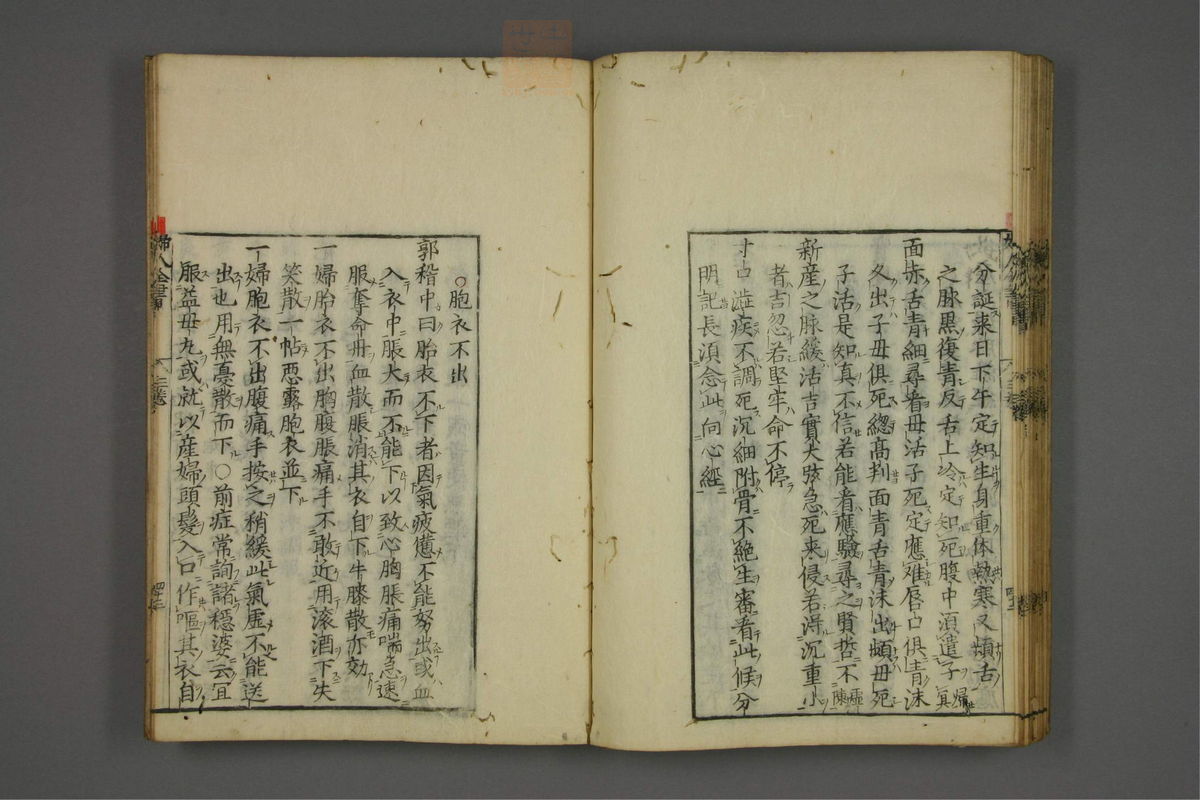 分誕来日下午定知生身重体熱寒又頻舌
之脉黒復青反舌上冷定知死腹中須遣子
面赤舌青細尋看母活子死定應难唇口俱青沫
久出子母俱死緫髙判面青舌青沫出頻母死
子活是知真不信若能看應驗尋之賢哲不
新産之脉緩活吉實大弦急死来侵若淂沉重小
者吉忽若堅牢命不停
寸口澁疾不調死沉細附骨不絶生審看此候分
明記長湏念此向心經
○胞衣不出
郭稽中曰胎衣不下者因氣疲憊不能努出或血
入衣中脹大而不能下以致心胸脹痛喘急速
服奪命丹血散脹消其衣自下牛膝散亦効
一婦胎衣不出胸腹脹痛手不敢近用滚酒下失
笑散一帖惡露胞衣並下
一婦胞衣不出腹痛手按之稍緩此氣虚不能送
出也用無憂散而下○前症常詢諸穩婆云宜
服益母丸或就以産婦頭髮入口作嘔其衣自